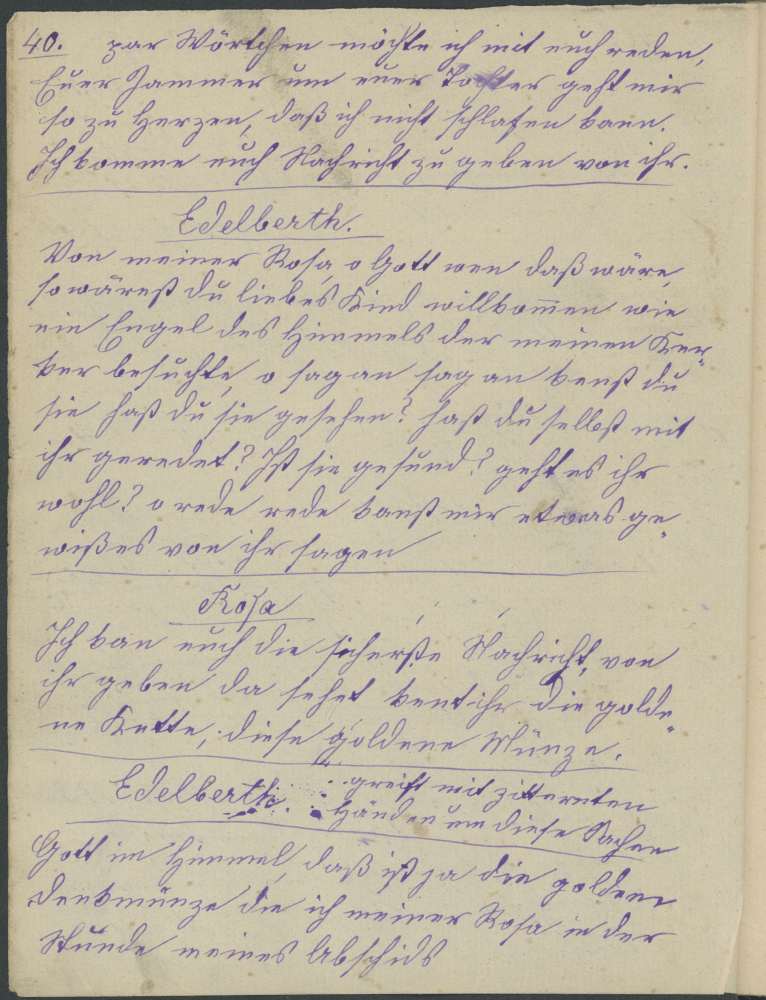 40. par Wörtchen möchte ich mit euch reden,
Euer Jammer um euer Tochter geht mir
so zu Herzen, daß ich nicht schlafen kann.
Ich komme euch Nachricht zu geben von ihr.
Edelberth.
Von meiner Rosa, o Gott wen daß wäre,
so wärest du liebes Kind willkomen wie
ein Engel des Himmels der meinen Ker„
ker besuchte, o sag an sag an kenst du
sie hast du sie gesehen? hast du selbst mit
ihr geredet? Ist sie gesund? geht es ihr
wohl? o rede rede kanst mir etwas ge„
wißes von ihr sagen
Rosa
Ich kan euch die sicherste Nachricht, von
ihr geben da sehet kent ihr die golde„
ne Kette, diese goldene Münze.
Edelberth. greift mit zitternten
Händen um diese Sachen
Gott im Himmel, daß ist ja die goldene
Denkmünze die ich meiner Rosa in der
Stunde meines Abschids